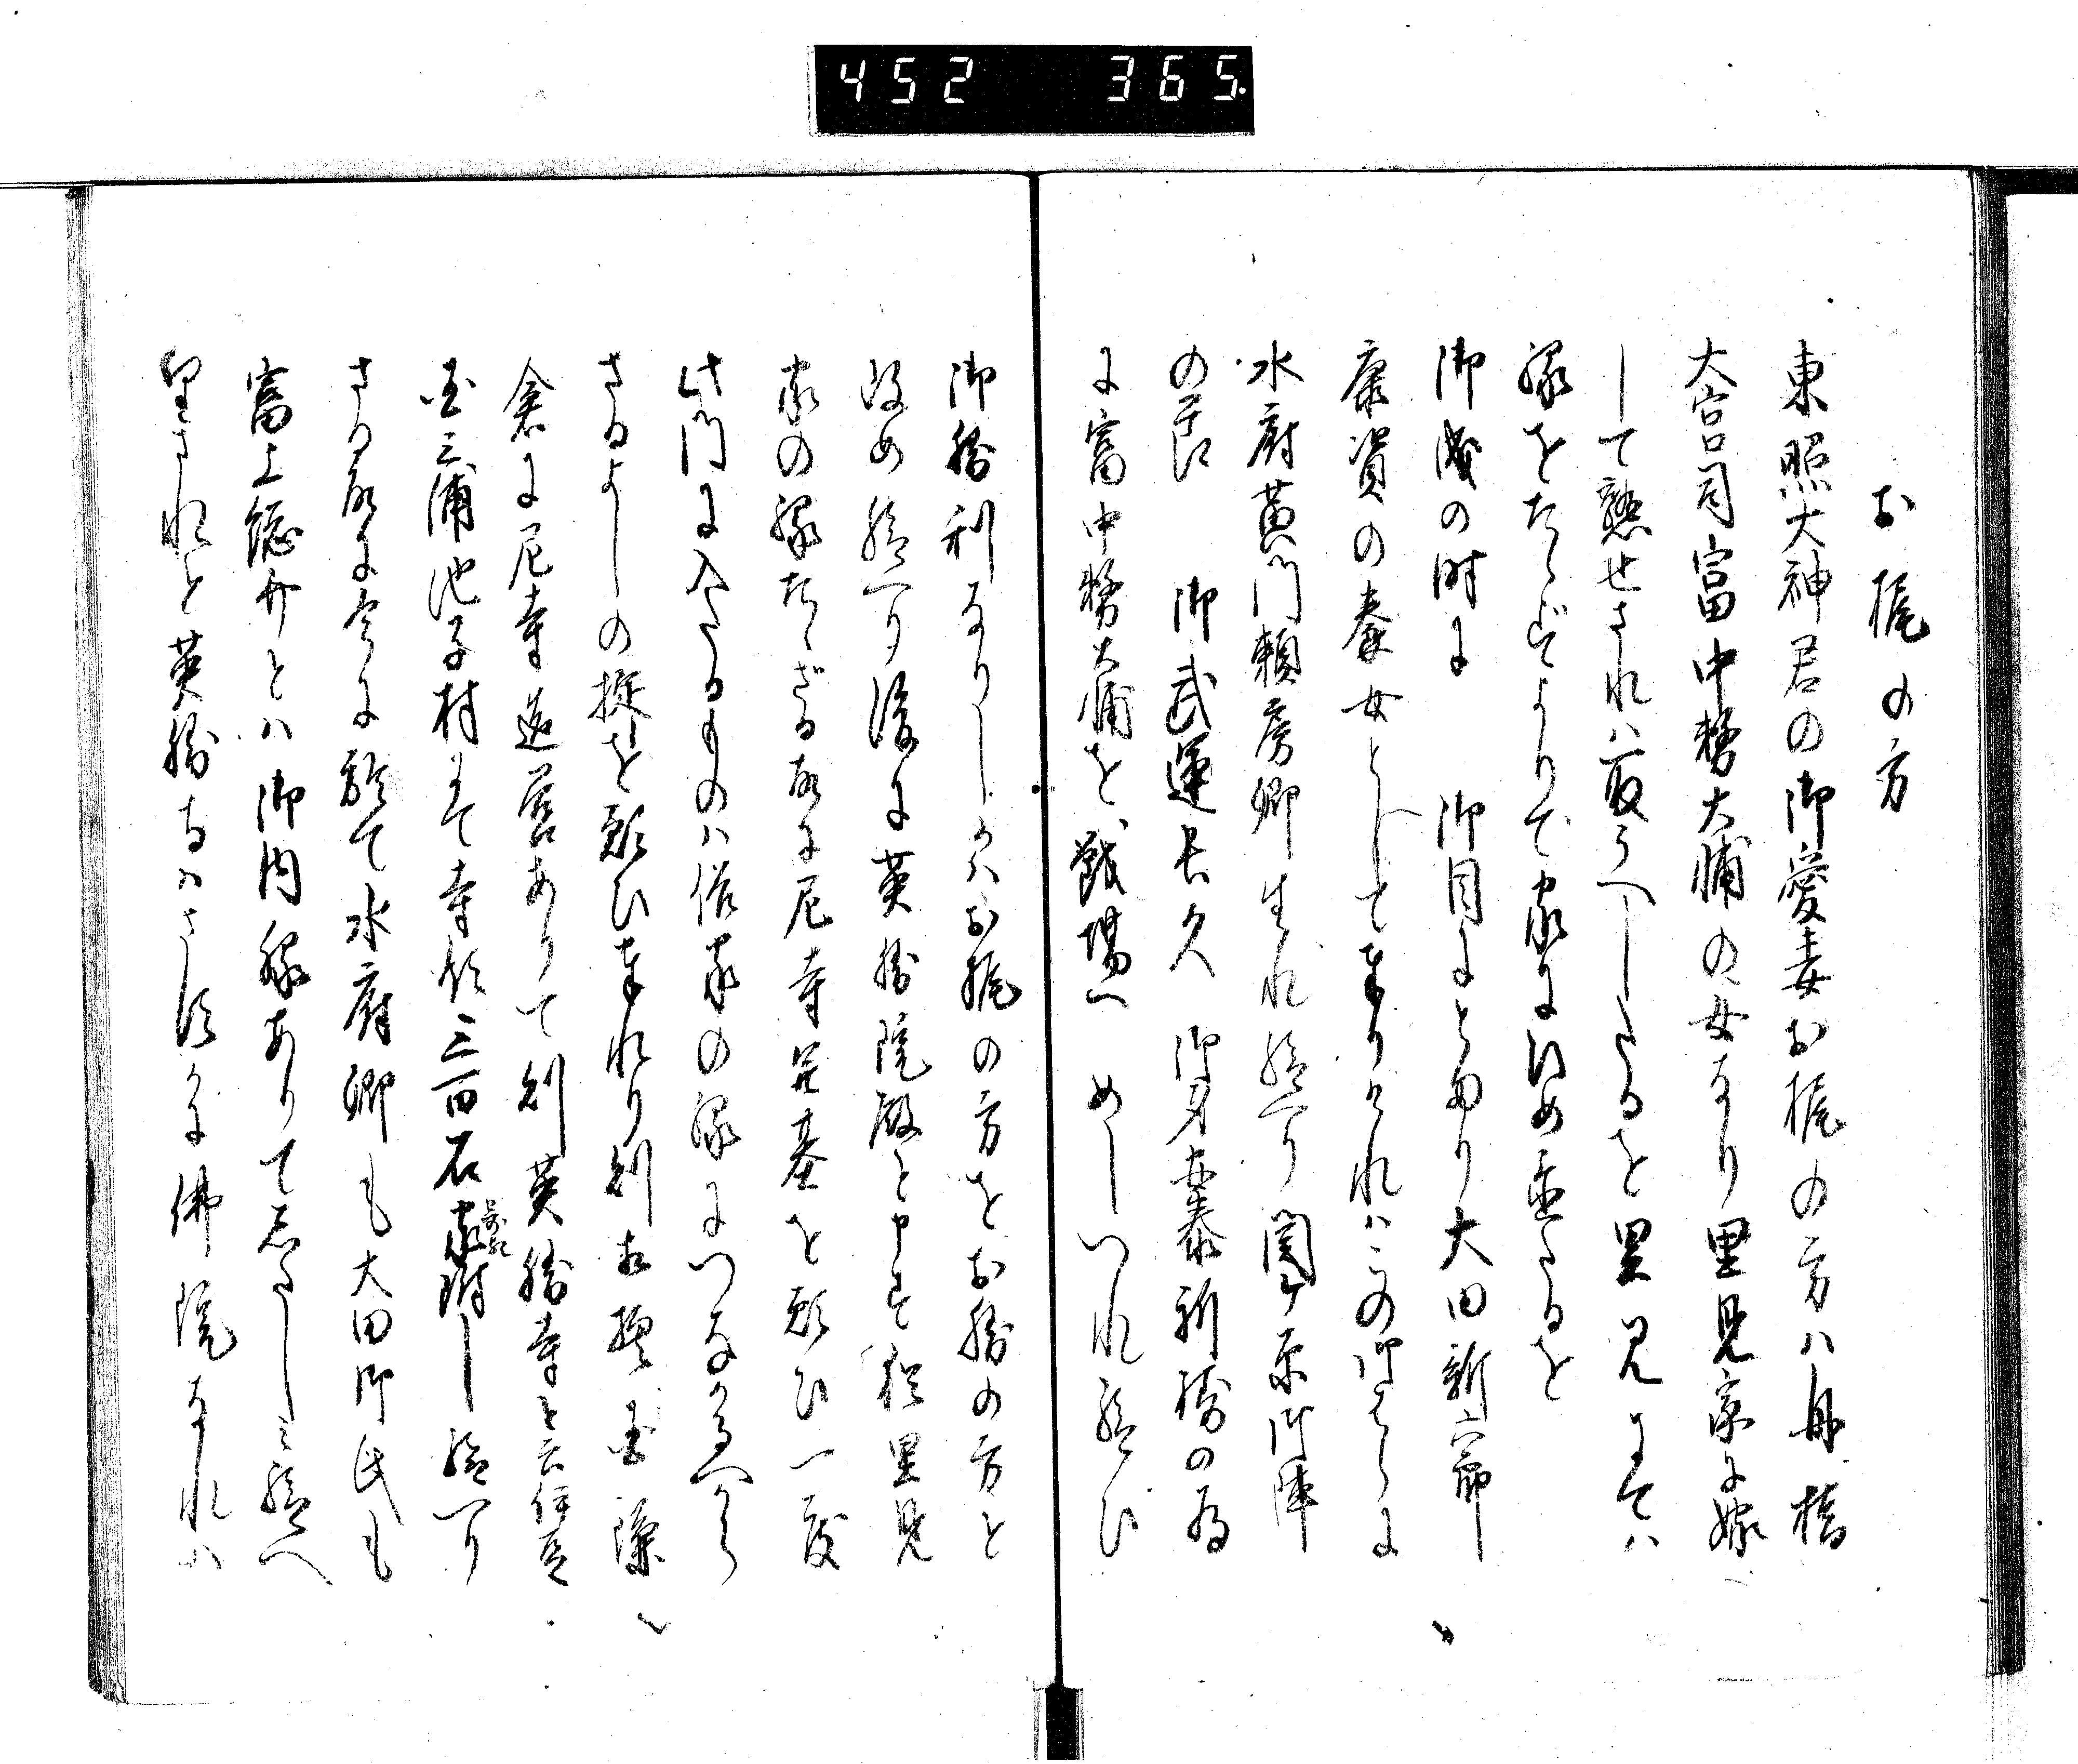 452 365.
お梶の方
東照大神君の御愛妻お梶の方ハ舟橋
大宮司富中務大輔の女なり里見家に嫁
して懇せされハ取うへしたるを里見にてハ
縁をたゝずよりて家にひめ置たるを
御成の時に 御目にとまり大田新六郎
康資の養女として奉りけれハこの御はらに
水府黄門頼房卿生れ給へり関ヶ原御陣
の節 御武運長久 御身安泰祈祷の為
に富中務大輔を戦場へ めしつれ給ひ
御勝利なりしかハお梶の方をお勝の方と
改め給へり後に英勝院殿と申す然里見
家の縁たゝざる故に尼寺開基を願ひ一度
此門に入たるものハ俗家の縁につながるへから
さるよしの掟を願ひ奉れり則相模国鎌
倉に尼寺造営ありて則英勝寺と云伊豆
国三浦池子村にて寺領三百石寄附し給へり
さる故に今に於て水府卿も大田御氏も
富上総介とハ御内縁ありて忘たしミ給へ
里されと英勝寺ハさすかに佛院なれハ